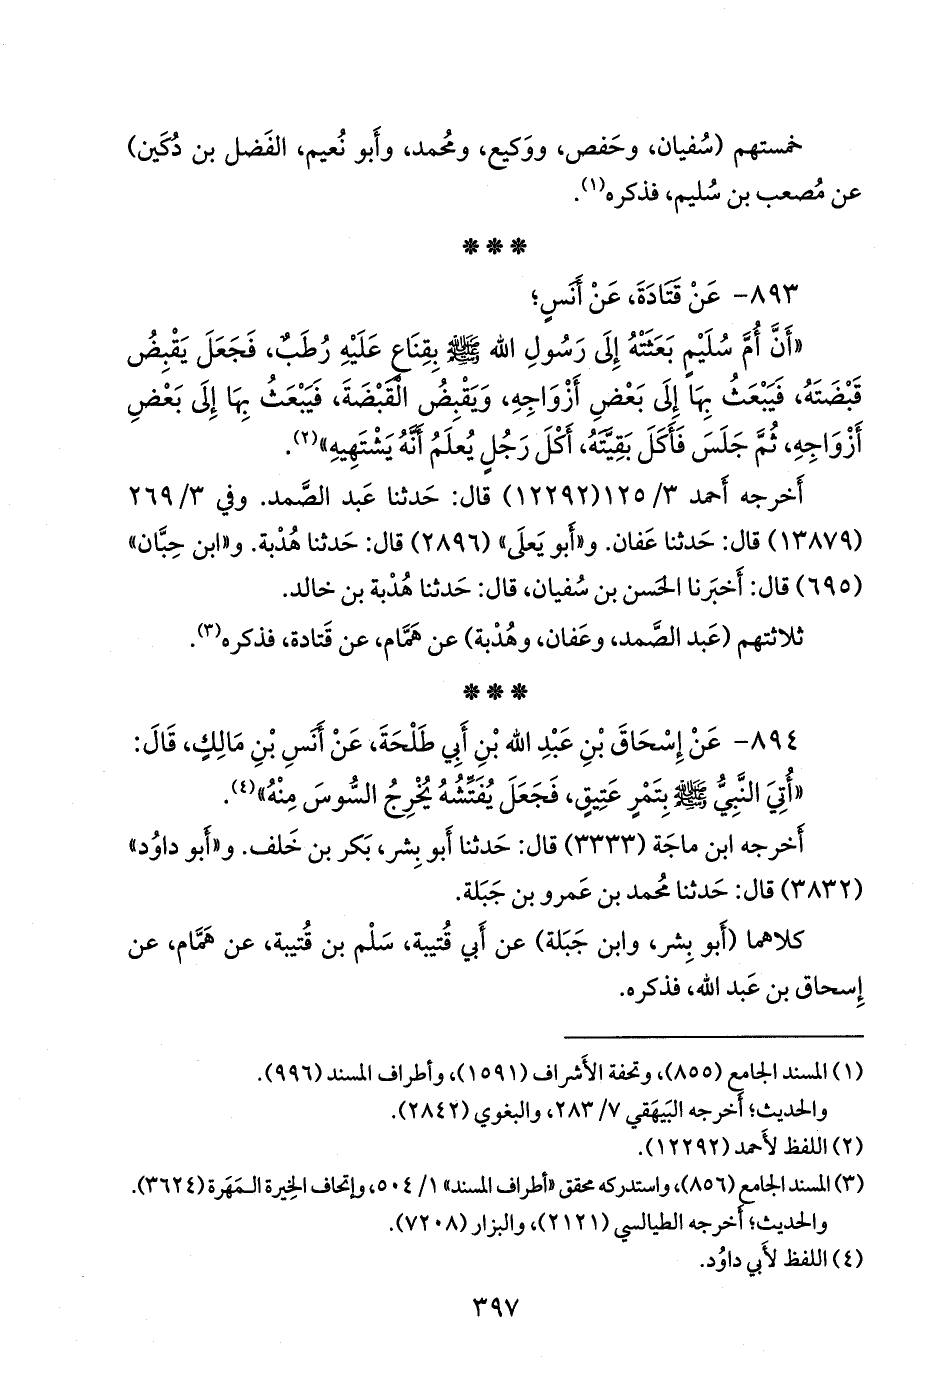 خمستهم (سُفيان، وحَفص، ووَكيع، ومُحمد، وأَبو نُعيم، الفَضل بن دُكَين)
عن مُصعب بن سُليم، فذكره(١).
***
٨٩٣- عَنْ قَتَادَةَ، عَنْ أَنَسٍ؛
«أَنَّ أُمَّ سُلَيْمٍ بَعَثَتْهُ إِلَى رَسُولِ الله ﷺ بِقِنَاعٍ عَلَيْهِ رُطَبٌ، فَجَعَلَ يَقْبِضُ
قَبْضَتَهُ، فَيَبْعَثُ بِهَا إِلَى بَعْضِ أَزْوَاجِهِ، وَيَقْبِضُ الْقَبْضَةَ، فَيَبْعَثُ بِهَا إِلَى بَعْضِ
أَزْوَاجِهِ، ثُمَّ جَلَسَ فَأَكَلَ بَقِيَّتَهُ، أَكْلَ رَجُلٍ يُعلَمُ أَنَّهُ يَشْتَهِيهِ»(٢).
أَخرجه أَحمد ٣/ ١٢٥(١٢٢٩٢) قال: حَدثنا عَبد الصَّمد. وفي ٣/ ٢٦٩
(١٣٨٧٩) قال: حَدثنا عَفان. و«أَبو يَعلَى» (٢٨٩٦) قال: حَدثنا هُدْبة. و«ابن حِبَّان»
(٦٩٥) قال: أَخبَرنا الحَسن بن سُفيان، قال: حَدثنا هُدْبة بن خالد.
ثلاثتهم (عَبد الصَّمد، وعَفان، وهُدْبة) عن هَمَّام، عن قَتادة، فذكره(٣).
***
٨٩٤- عَنْ إِسْحَاقَ بْنِ عَبْدِ الله بْنِ أَبِي طَلْحَةَ، عَنْ أَنَسِ بْنِ مَالِكٍ، قَالَ:
«أُتِيَ النَّبِيُّ ﷺ بِتَمْرٍ عَتِيقٍ، فَجَعَلَ يُفَتِّشُهُ يُخْرِجُ السُّوسَ مِنْهُ»(٤).
أَخرجه ابن ماجَة (٣٣٣٣) قال: حَدثنا أَبو بِشر، بَكر بن خَلف. و«أَبو داوُد»
(٣٨٣٢) قال: حَدثنا مُحمد بن عَمرو بن جَبَلة.
كلاهما (أَبو بِشر، وابن جَبَلة) عن أَبي قُتيبة، سَلْم بن قُتيبة، عن هَمَّام، عن
إِسحاق بن عَبد الله، فذكره.
(١) المسند الجامع (٨٥٥)، وتحفة الأَشراف (١٥٩١)، وأطراف المسند (٩٩٦).
والحديث؛ أَخرجه البَيهَقي ٧/ ٢٨٣، والبغوي (٢٨٤٢).
(٢) اللفظ لأَحمد (١٢٢٩٢).
(٣) المسند الجامع (٨٥٦)، واستدركه محقق «أطراف المسند» ١/ ٥٠٤، وإتحاف الخِيرة الـمَهَرة (٣٦٢٤).
والحديث؛ أَخرجه الطيالسي (٢١٢١)، والبزار (٧٢٠٨).
(٤) اللفظ لأَبي داوُد.
٣٩٧